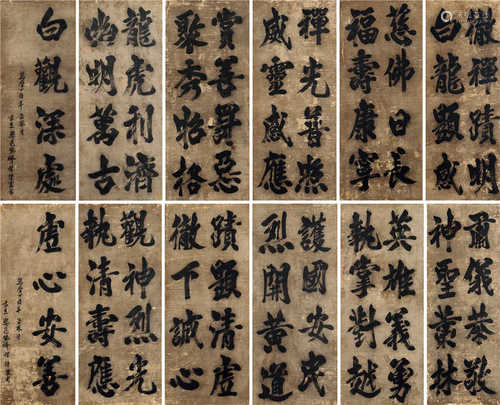 徹禪蹟明
白龍顯感
慈佛日長
福壽康寧
禪光普照
威靈感應
賞善罰惡
聚秀昭格
龍虎利濟
幽明萬古
白觀深處
肅儀恭敬
神聖黃林
英雄義勇
執掌對越
護國安民
烈關黃道
蹟顯清虛
徹下誠心
觀神烈光
執清壽應
虛心安善